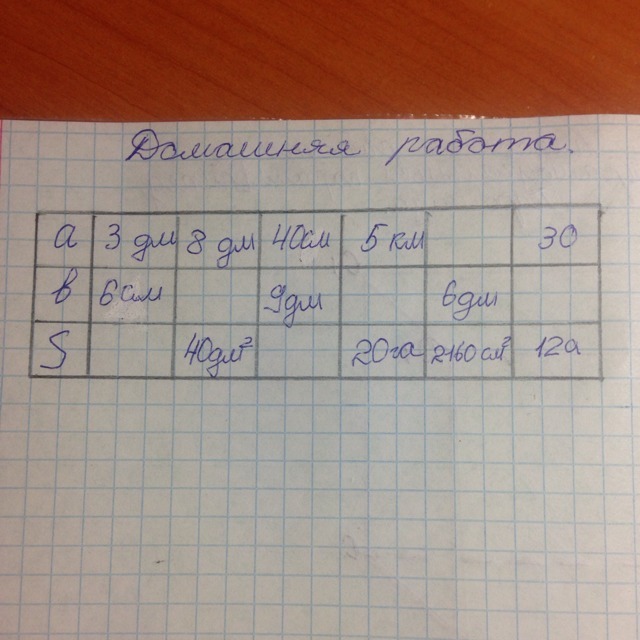 Домашняя работа.
а 3 дм 8 дм 40см 5 км 30
в 6см 9дм 6дм
S 40дм² 20га 2160см² 12а